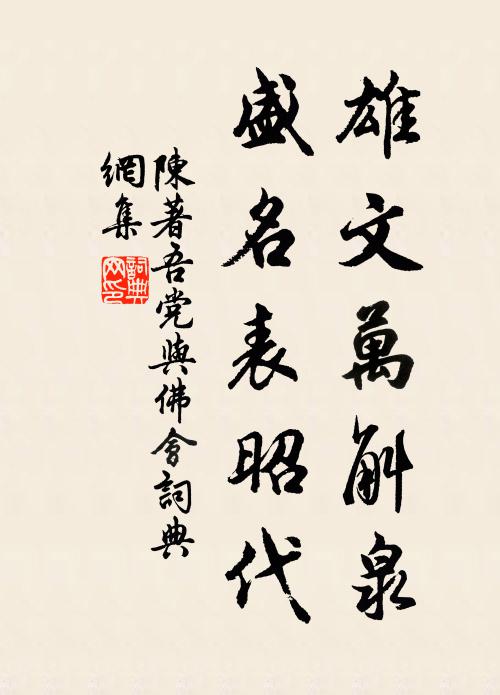 雄文萬斛泉
盛名表昭代
陳著吾党與佛會詞典
網集
詞典網印